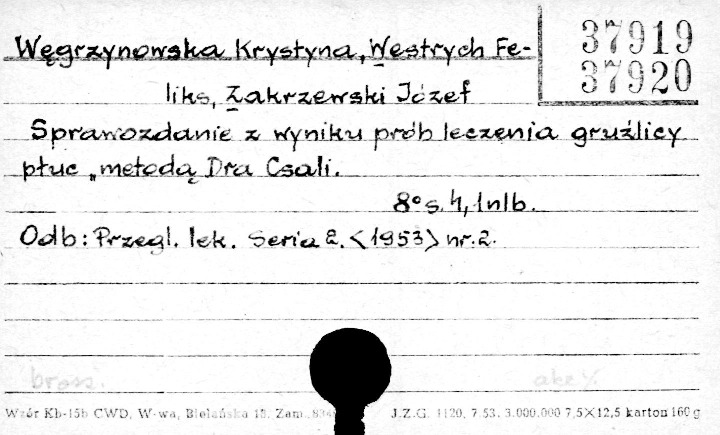 37919
37920
Węgrzynowska Krystyna, Westrych Fe-
liks, Zakrzewski Józef
Sprawozdanie z wyniku prób leczenia gruźlicy
płuc „metodą Dra Csali.
8° s. 4, 1nlb.
Odb: Przegl. lek. Seria 2. <1953> nr. 2.
brosz.
Wzór Kb-15b CWD, W-wa, Bielańska 18. Zam. J.Z.G. 1120. 7.53. 3.000.000 7,5×12,5 karton 160 g